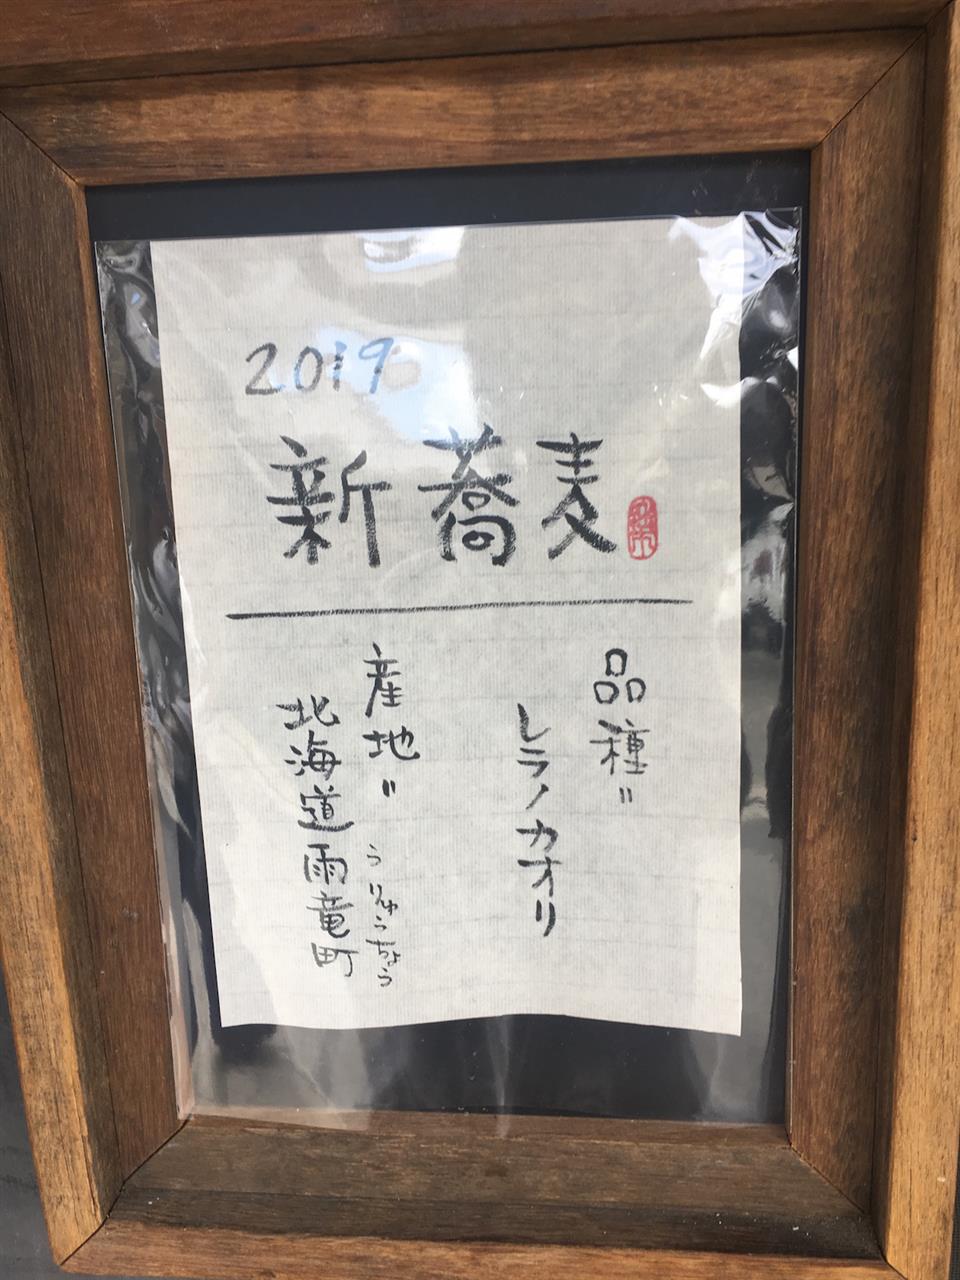 2019
新蕎麦
品種＝
レラノカオリ
産地＝
うりゅうちょう
北海道雨竜町